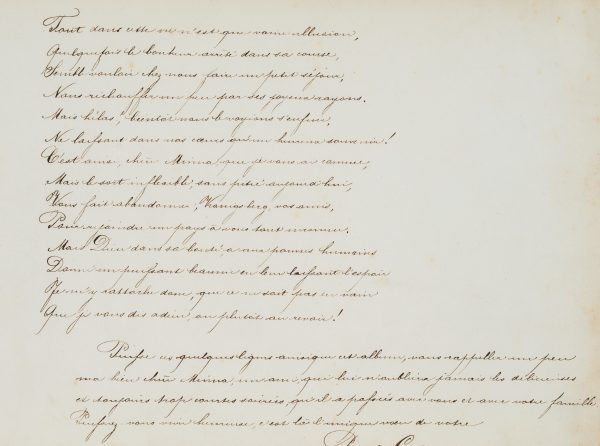 Tout dans cette vie n'est que vaine illusion,
Quelquefois le bonheur arrêté dans sa course,
Semble vouloir chez nous faire un petit séjour,
Nous réchauffer un peu par ses joyeux rayons.
Mais hélas! bientôt nous le voyons s'enfuir,
Ne laissant dans nos cœurs qu'un heureux souvenir!
C'est ainsi, chère Minna, que je vous ai connue,
Mais le sort inflexible, sans pitié aujourd'hui,
Vous fait abandonner, Königsberg, vos amis,
Pour rejoindre un pays à vous tout inconnu.
Mais Dieu dans sa bonté, a aux pauvres humains
Donné un puissant baume en leur laissant l'espoir
Je m'y rattache donc, que ce ne soit pas en vain
Que je vous dis adieu, ou plutôt au revoir!
Puisse ces quelques lignes ainsique cet album, vous rappeller un peu
ma bien chère Minna, un ami, qui lui n'oubliera jamais les délicieuses
et toujours trop courtes soirées, qu'il a passées avec vous et avec votre famille.
Puissiez vous vivre heureuse, c'est là l'unique vœu de votre